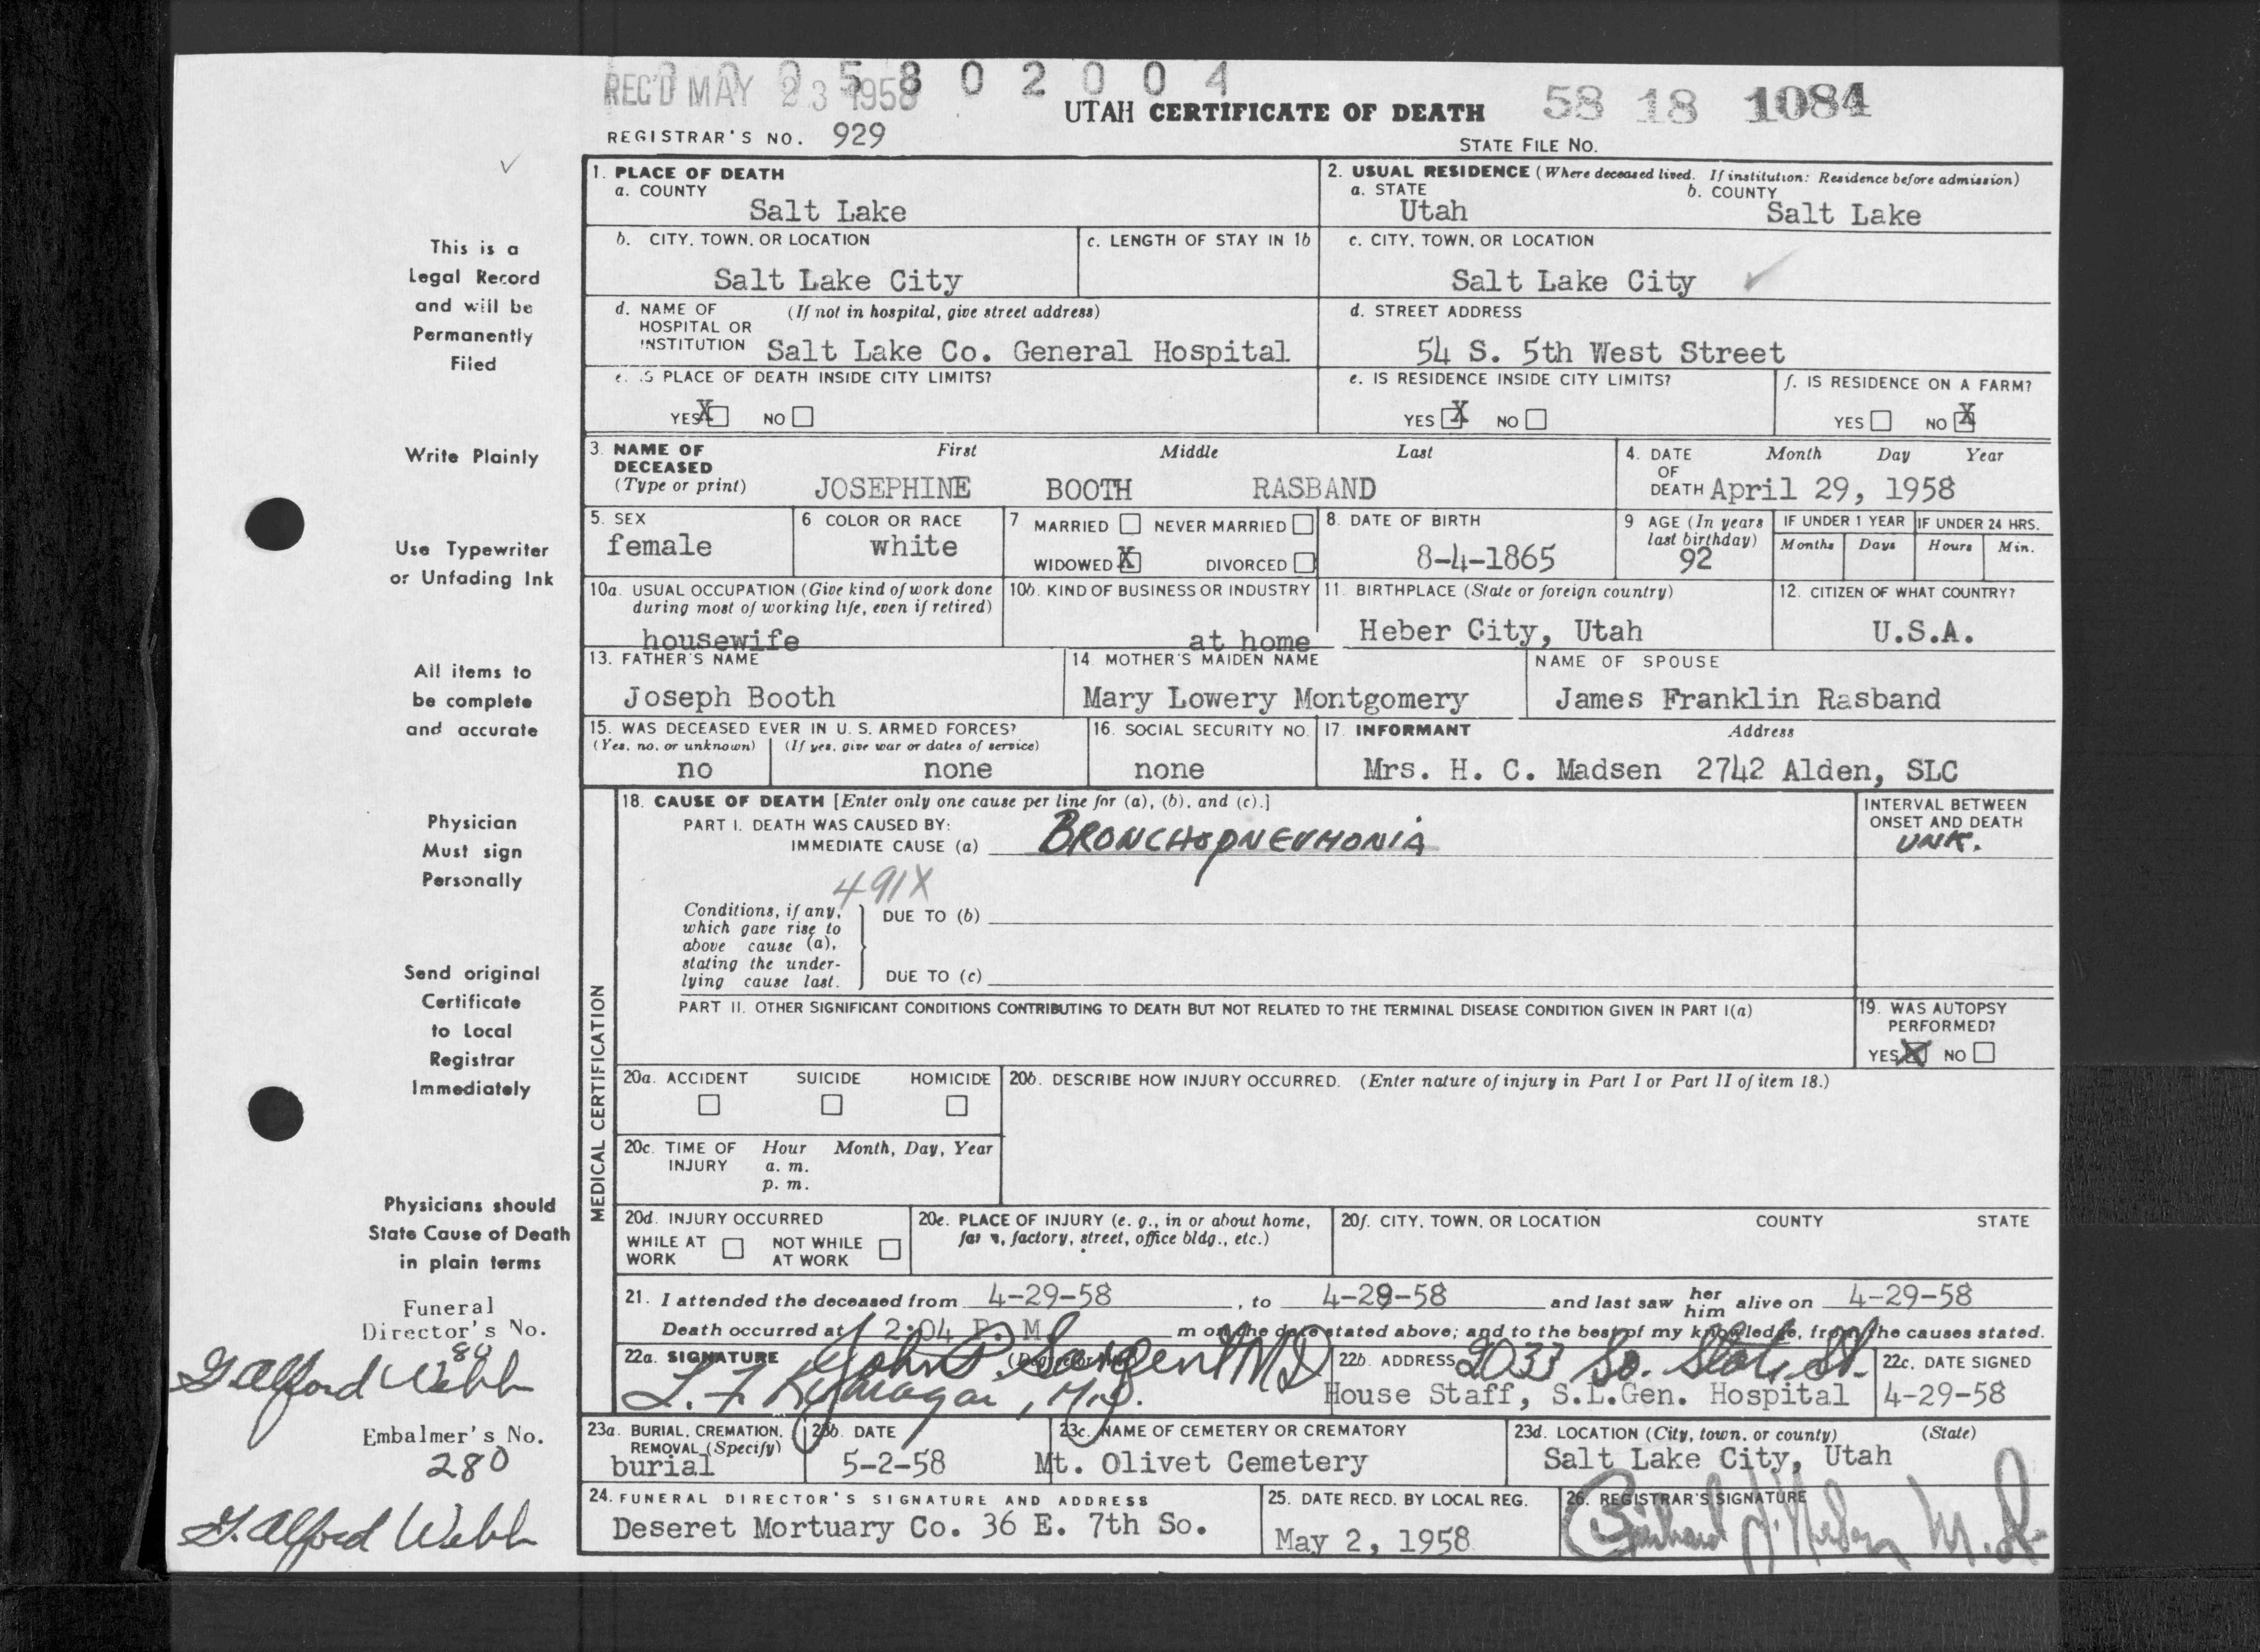 REC'D MAY 23 1958
5 8 0 2 0 0 4
UTAH CERTIFICATE OF DEATH
58 18 1084
REGISTRAR'S NO. 929
STATE FILE NO.
1. PLACE OF DEATH
a. COUNTY
Salt Lake
2. USUAL RESIDENCE (Where deceased lived. If institution: Residence before admission)
a. STATE b. COUNTY
Utah Salt Lake
b. CITY, TOWN, OR LOCATION
Salt Lake City
c. LENGTH OF STAY IN 1b
c. CITY, TOWN, OR LOCATION
Salt Lake City
d. NAME OF (If not in hospital, give street address)
HOSPITAL OR
INSTITUTION Salt Lake Co. General Hospital
d. STREET ADDRESS
54 S. 5th West Street
e. IS PLACE OF DEATH INSIDE CITY LIMITS?
YES X NO
e. IS RESIDENCE INSIDE CITY LIMITS?
YES X NO
f. IS RESIDENCE ON A FARM?
YES NO X
3. NAME OF DECEASED (Type or print)
First Middle Last
JOSEPHINE BOOTH RASBAND
4. DATE OF DEATH
Month Day Year
April 29, 1958
5. SEX
female
6 COLOR OR RACE
white
7 MARRIED NEVER MARRIED
WIDOWED X DIVORCED
8. DATE OF BIRTH
8-4-1865
9 AGE (In years last birthday)
92
IF UNDER 1 YEAR
Months Days
IF UNDER 24 HRS.
Hours Min.
10a. USUAL OCCUPATION (Give kind of work done
during most of working life, even if retired)
housewife
10b. KIND OF BUSINESS OR INDUSTRY
at home
11. BIRTHPLACE (State or foreign country)
Heber City, Utah
12. CITIZEN OF WHAT COUNTRY?
U.S.A.
13. FATHER'S NAME
Joseph Booth
14. MOTHER'S MAIDEN NAME
Mary Lowery Montgomery
NAME OF SPOUSE
James Franklin Rasband
15. WAS DECEASED EVER IN U. S. ARMED FORCES?
(Yes, no, or unknown) (If yes, give war or dates of service)
no none
16. SOCIAL SECURITY NO.
none
17. INFORMANT Address
Mrs. H. C. Madsen 2742 Alden, SLC
MEDICAL CERTIFICATION
18. CAUSE OF DEATH [Enter only one cause per line for (a), (b), and (c).]
PART I. DEATH WAS CAUSED BY:
IMMEDIATE CAUSE (a) BRONCHOPNEUMONIA
INTERVAL BETWEEN
ONSET AND DEATH
UNK.
491X
Conditions, if any,
which gave rise to
above cause (a),
stating the under-
lying cause last.
DUE TO (b)
DUE TO (c)
PART II. OTHER SIGNIFICANT CONDITIONS CONTRIBUTING TO DEATH BUT NOT RELATED TO THE TERMINAL DISEASE CONDITION GIVEN IN PART I(a)
19. WAS AUTOPSY
PERFORMED?
YES X NO
20a. ACCIDENT SUICIDE HOMICIDE
20b. DESCRIBE HOW INJURY OCCURRED. (Enter nature of injury in Part I or Part II of item 18.)
20c. TIME OF INJURY
Hour Month, Day, Year
a. m.
p. m.
20d. INJURY OCCURRED
WHILE AT WORK NOT WHILE AT WORK
20e. PLACE OF INJURY (e. g., in or about home,
farm, factory, street, office bldg., etc.)
20f. CITY, TOWN, OR LOCATION COUNTY STATE
21. I attended the deceased from 4-29-58, to 4-29-58 and last saw her him alive on 4-29-58
Death occurred at 2:04 P. M. m on the date stated above; and to the best of my knowledge, from the causes stated.
22a. SIGNATURE
John P. Sargent MD
22b. ADDRESS 2033 So. State St.
House Staff, S.L.Gen. Hospital
22c. DATE SIGNED
4-29-58
23a. BURIAL, CREMATION,
REMOVAL (Specify)
burial
23b. DATE
5-2-58
23c. NAME OF CEMETERY OR CREMATORY
Mt. Olivet Cemetery
23d. LOCATION (City, town, or county) (State)
Salt Lake City, Utah
24. FUNERAL DIRECTOR'S SIGNATURE AND ADDRESS
Deseret Mortuary Co. 36 E. 7th So.
25. DATE RECD. BY LOCAL REG.
May 2, 1958
26. REGISTRAR'S SIGNATURE
This is a
Legal Record
and will be
Permanently
Filed
Write Plainly
Use Typewriter
or Unfading Ink
All items to
be complete
and accurate
Physician
Must sign
Personally
Send original
Certificate
to Local
Registrar
Immediately
Physicians should
State Cause of Death
in plain terms
Funeral
Director's No.
80
G. Alford Webb
Embalmer's No.
280
G. Alford Webb